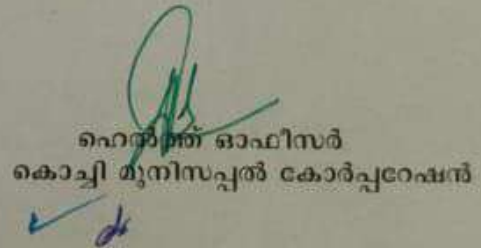 ഹെൽത്ത് ഓഫീസർ
കൊച്ചി മുനിസപ്പൽ കോർപ്പറേഷൻ